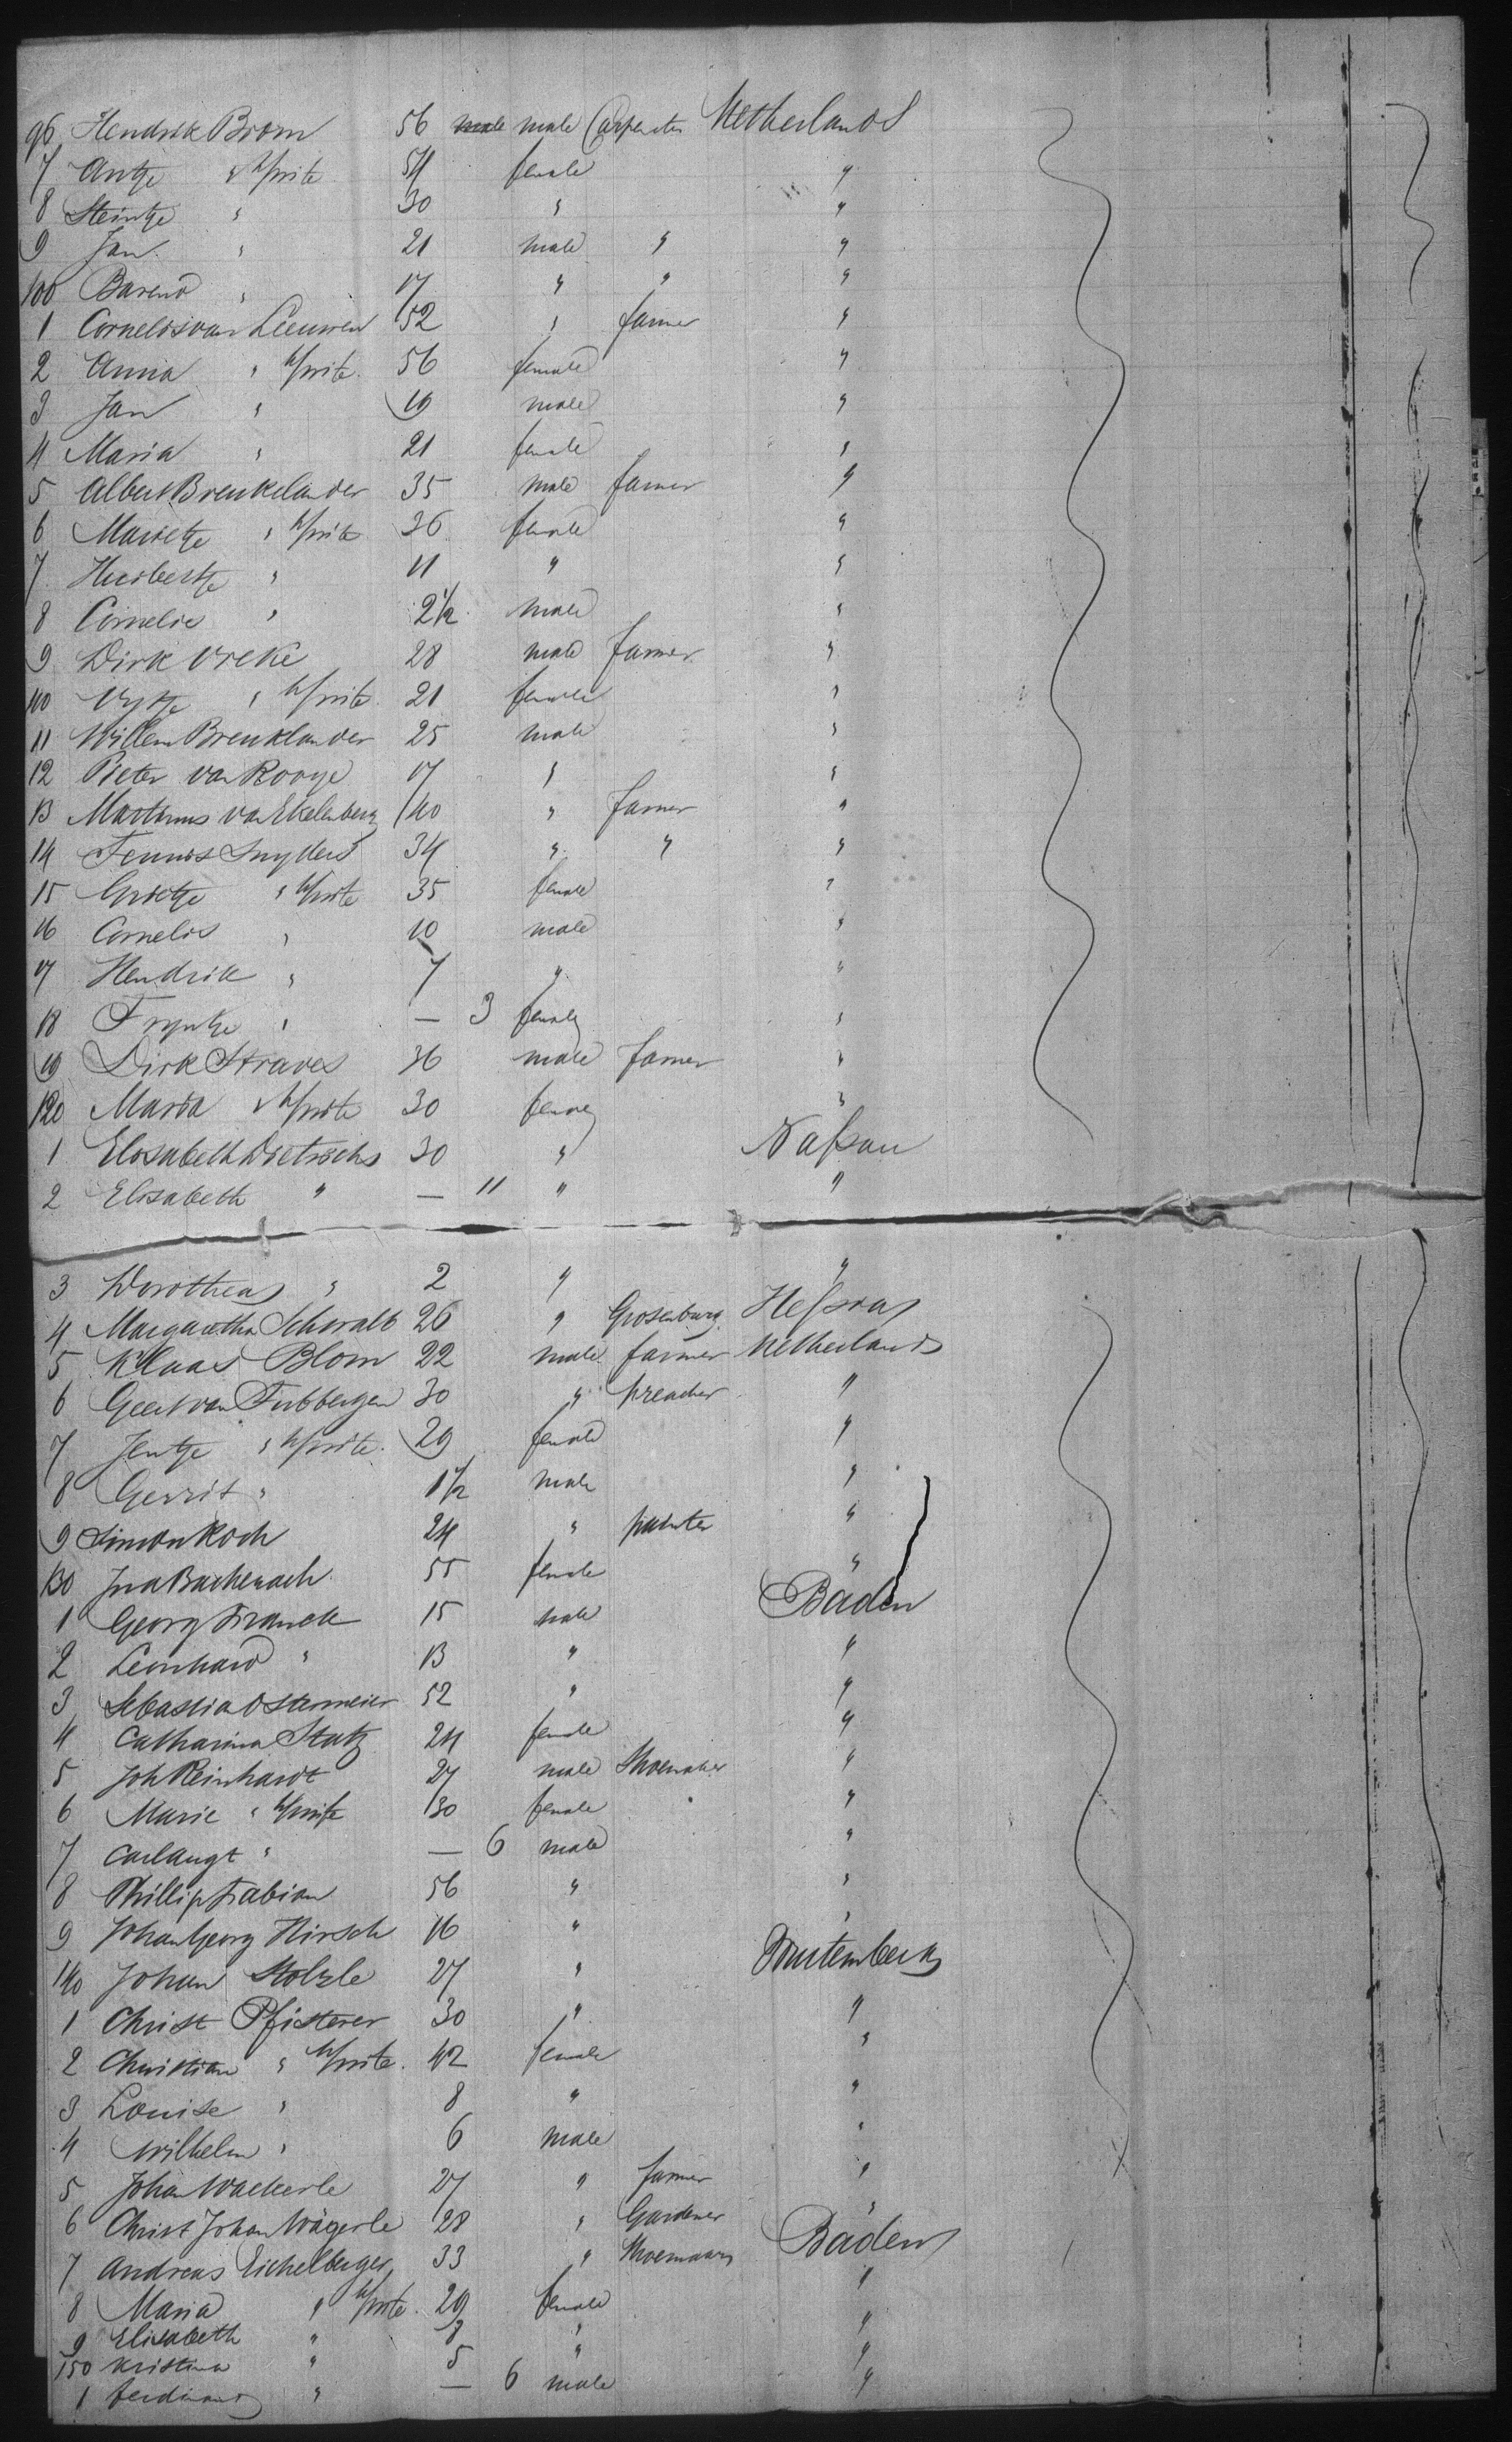 96 Hendrik Brom 56 male male Carpenter Netherlands
7 Antje " h/wife 54 female "
8 Steintje " 30 " "
9 Jan " 21 male " "
100 Barend " 17 " " "
1 Cornelis van Leeuwen 52 " farmer "
2 Anna " h/wife 56 female "
3 Jan " 19 male "
4 Maria " 21 female "
5 Albert Breukelander 35 male farmer "
6 Marietje " h/wife 36 female "
7 Huibertje " 11 " "
8 Cornelis " 2 1/2 male "
9 Dirk Vreke 28 male farmer "
110 " h/wife 21 female "
11 Willem Breuklander 25 male "
12 Pieter van Rooye 17 " "
13 Martinus van Ekelenberg 40 " farmer "
14 Teunis Snyders 34 " " "
15 Grietje " h/wife 35 female "
16 Cornelis " 10 male "
17 Hendrik " 7 " "
18 Tryntje " — 3 female "
19 Dirk Straves 36 male farmer "
120 Maria " h/wife 30 female "
1 Elisabeth Dietrichs 30 " Naßau
2 Elisabeth " — 11 " "
3 Dorothea " 2 " "
4 Margaretha Schwalb 26 " Heßia
5 Klaas Blom 22 male farmer Netherlands
6 Geert van Tubbergen 30 " preacher "
7 Jentje " h/wife 29 female "
8 Gerrit " 1 1/2 male "
9 Simon Koch 24 " painter "
130 Bacherach 55 female "
1 Georg Franck 15 male Baden
2 Leonhard " 13 " "
3 Sebastia Ostermeier 52 " "
4 Catharina Stutz 24 female "
5 Joh Reinhardt 27 male Shoemaker "
6 Marie " h/wife 30 female "
7 Carl Augt " — 6 male "
8 Phillip Fabian 56 " "
9 Johan Georg Hirsch 16 " "
140 Johan Stolzle 27 " Wurtemberg
1 Christ Pfisterer 30 " "
2 Christian " h/wife 42 female "
3 Louise " 8 " "
4 Wilhelm " 6 male "
5 Johan Wackerle 27 " farmer "
6 Christ Johan Wägerle 28 " Gardener "
7 Andreas Eichelberger 33 " Shoemaker Baden
8 Maria " h/wife 29 female "
9 Elisabeth " 8 " "
150 Kristina " 5 " "
1 Ferdinand " — 6 male "